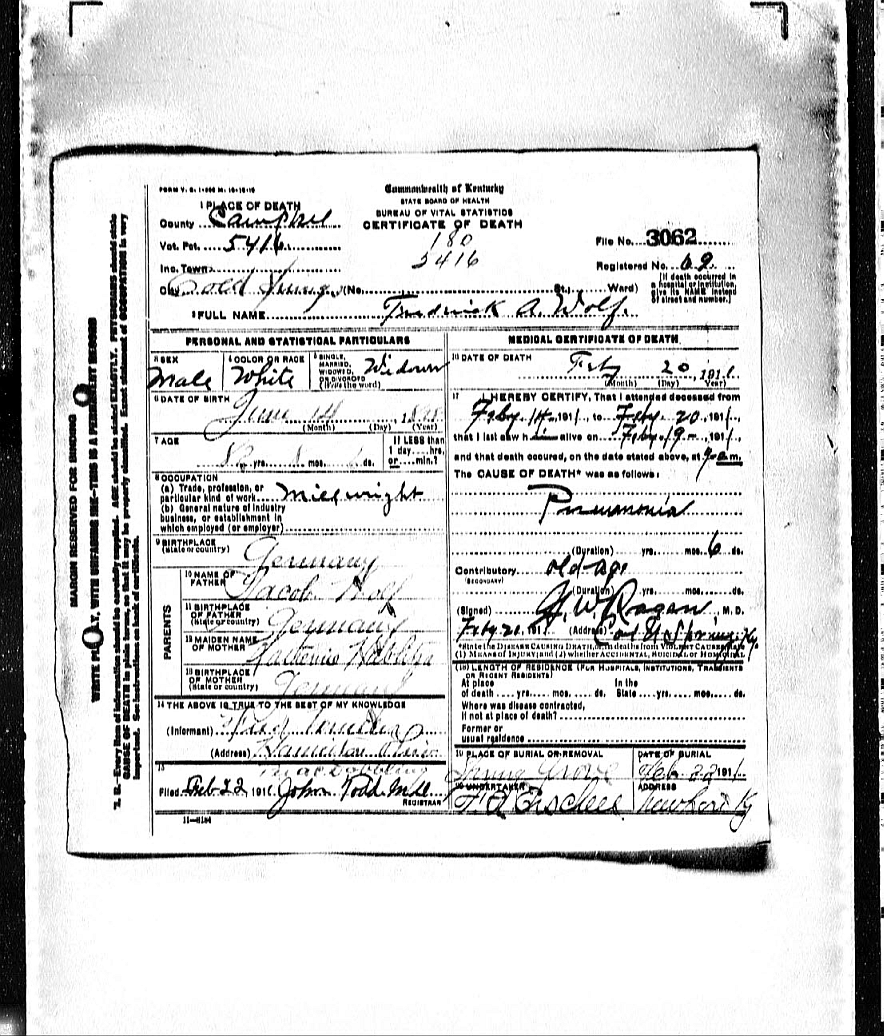 FORM V. S. 1
Commonwealth of Kentucky
STATE BOARD OF HEALTH
BUREAU OF VITAL STATISTICS
CERTIFICATE OF DEATH
180
5416
1 PLACE OF DEATH
County Campbell
Vot. Pct. 5416
Inc. Town
City Cold Spring (No. St.; Ward)
File No. 3062
Registered No. 62
(If death occurred in a hospital or institution, give its NAME instead of street and number.)
2 FULL NAME Frederick A. Wolf.
PERSONAL AND STATISTICAL PARTICULARS
3 SEX
Male
4 COLOR OR RACE
White
5 SINGLE, MARRIED, WIDOWED, OR DIVORCED (Write the word)
6 DATE OF BIRTH
June 14
(Month) (Day) (Year)
7 AGE
yrs. mos. ds.
If LESS than 1 day....hrs. or....min.?
8 OCCUPATION
(a) Trade, profession, or particular kind of work Millwright
(b) General nature of industry business, or establishment in which employed (or employer)
9 BIRTHPLACE
(State or country) Germany
PARENTS
10 NAME OF FATHER
Jacob Wolf
11 BIRTHPLACE OF FATHER
(State or country) Germany
12 MAIDEN NAME OF MOTHER
13 BIRTHPLACE OF MOTHER
(State or country) Germany
14 THE ABOVE IS TRUE TO THE BEST OF MY KNOWLEDGE
(Informant)
(Address) Hamilton
15
Filed Feb 22 1911 John Todd M.D.
REGISTRAR
11-6184
MEDICAL CERTIFICATE OF DEATH
16 DATE OF DEATH
Feby 20, 1911
(Month) (Day) (Year)
17 I HEREBY CERTIFY, That I attended deceased from
Feby. 14, 1911, to Feby. 20, 1911,
that I last saw h alive on Feby. 19, 1911,
and that death occured, on the date stated above, at 9 a.m.
The CAUSE OF DEATH* was as follows:
Pneumonia
(Duration) yrs. mos. 6 ds.
Contributory old age
(SECONDARY)
(Duration) yrs. mos. ds.
(Signed) , M. D.
Feby 21, 1911 (Address) Cold Spring, Ky.
*State the DISEASE CAUSING DEATH, or, in deaths from VIOLENT CAUSES, state (1) MEANS OF INJURY; and (2) whether ACCIDENTAL, SUICIDAL or HOMICIDAL
18 LENGTH OF RESIDENCE (FOR HOSPITALS, INSTITUTIONS, TRANSIENTS OR RECENT RESIDENTS)
At place of death yrs. mos. ds. In the State yrs. mos. ds.
Where was disease contracted, if not at place of death?
Former or usual residence
19 PLACE OF BURIAL OR REMOVAL
Spring Grove
DATE OF BURIAL
Feb. 22 1911
20 UNDERTAKER
ADDRESS
Newport Ky
MARGIN RESERVED FOR BINDING
WRITE PLAINLY, WITH UNFADING INK—THIS IS A PERMANENT RECORD
N. B.—Every item of information should be carefully supplied. AGE should be stated EXACTLY. PHYSICIANS should state CAUSE OF DEATH in plain terms, so that it may be properly classified. Exact statement of OCCUPATION is very important. See instructions on back of certificate.